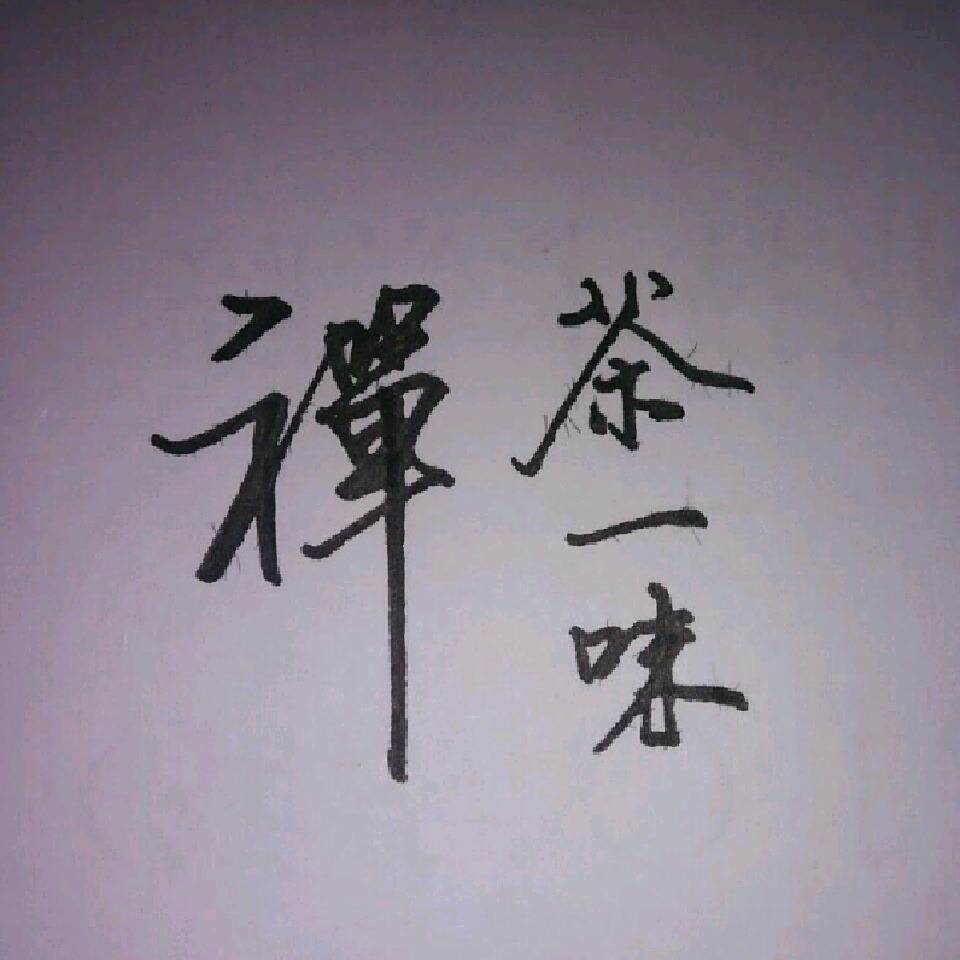 禪
茶一味